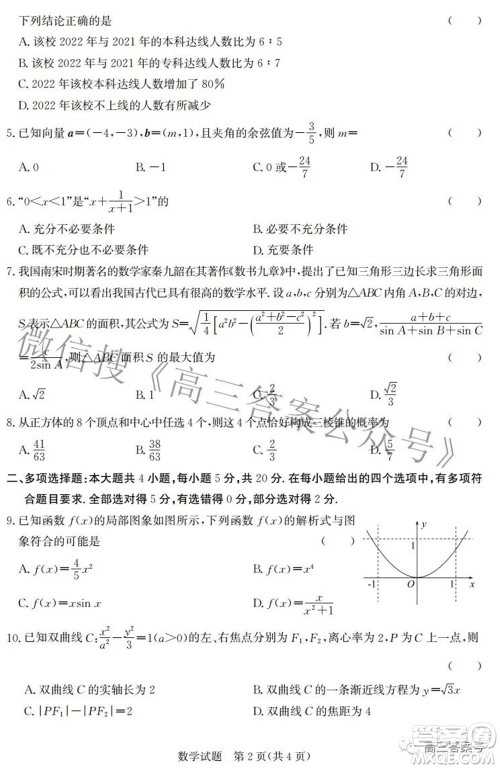 下列结论正确的是 ( )
A. 该校 2022 年与 2021 年的本科达线人数比为 6∶5
B. 该校 2022 年与 2021 年的专科达线人数比为 6∶7
C. 2022 年该校本科达线人数增加了 80%
D. 2022 年该校不上线的人数有所减少
5. 已知向量 a=(-4,-3),b=(m,1),且夹角的余弦值为-3/5,则 m= ( )
A. 0 B. -24/7 C. 0 或-24/7 D. -24/7
6. “0<x<1”是“x+1/(x+1)>1”的 ( )
A. 充分不必要条件 B. 必要不充分条件
C. 既不充分也不必要条件 D. 充要条件
7. 我国南宋时期著名的数学家秦九韶在其著作《数书九章》中,提出了已知三角形三边长求三角形面
积的公式,可以看出我国古代已具有很高的数学水平. 设 a,b,c 分别为△ABC 内角 A,B,C 的对边,
S 表示△ABC 的面积,其公式为 S=√(1/4[a²b²-((a²+b²-c²)/2)²]). 若 b=√2, (a+b+c)/(sin A+sin B+sin C)
=c/(2sin A),则△ABC 面积 S 的最大值为 ( )
A. √2 B. 1 C. 2/3 D. √2/3
8. 从正方体的 8 个顶点和中心中任选 4 个,则这 4 个点恰好构成三棱锥的概率为 ( )
A. 41/63 B. 38/63 C. 2/3 D. 5/7
二、多项选择题:本大题共 4 小题,每小题 5 分,共 20 分. 在每小题给出的四个选项中,有多项符
合题目要求. 全部选对得 5 分,有选错得 0 分,部分选对得 2 分.
9. 已知函数 f(x)的局部图象如图所示,下列函数 f(x)的解析式与图
象符合的可能是 ( )
A. f(x)=4/5x² B. f(x)=x⁴
C. f(x)=xsin x D. f(x)=x/(x²+1)
y
1
-1 O 1 x
10. 已知双曲线 C:x²/a²-y²/3=1(a>0)的左、右焦点分别为 F₁,F₂,离心率为 2,P 为 C 上一点,则
( )
A. 双曲线 C 的实轴长为 2 B. 双曲线 C 的一条渐近线方程为 y=√3x
C. |PF₁|-|PF₂|=2 D. 双曲线 C 的焦距为 4
数学试题 第 2 页(共 4 页)
微信搜《高三答案公众号》
高三答案号